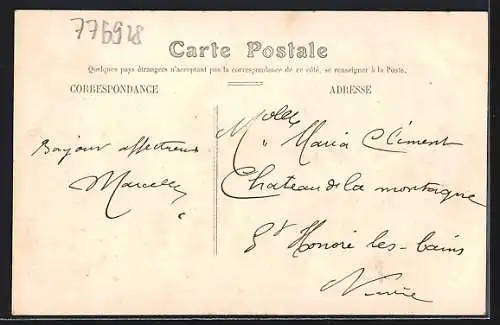 776928
Carte Postale
Quelques pays étrangers n'acceptent pas la correspondance de ce côté, se renseigner à la Poste.
CORRESPONDANCE
ADRESSE
Bonjour affectueux
Marcelle
Melle Maria Clément
Chateau de la montagne
St Honoré les-bains
Nièvre